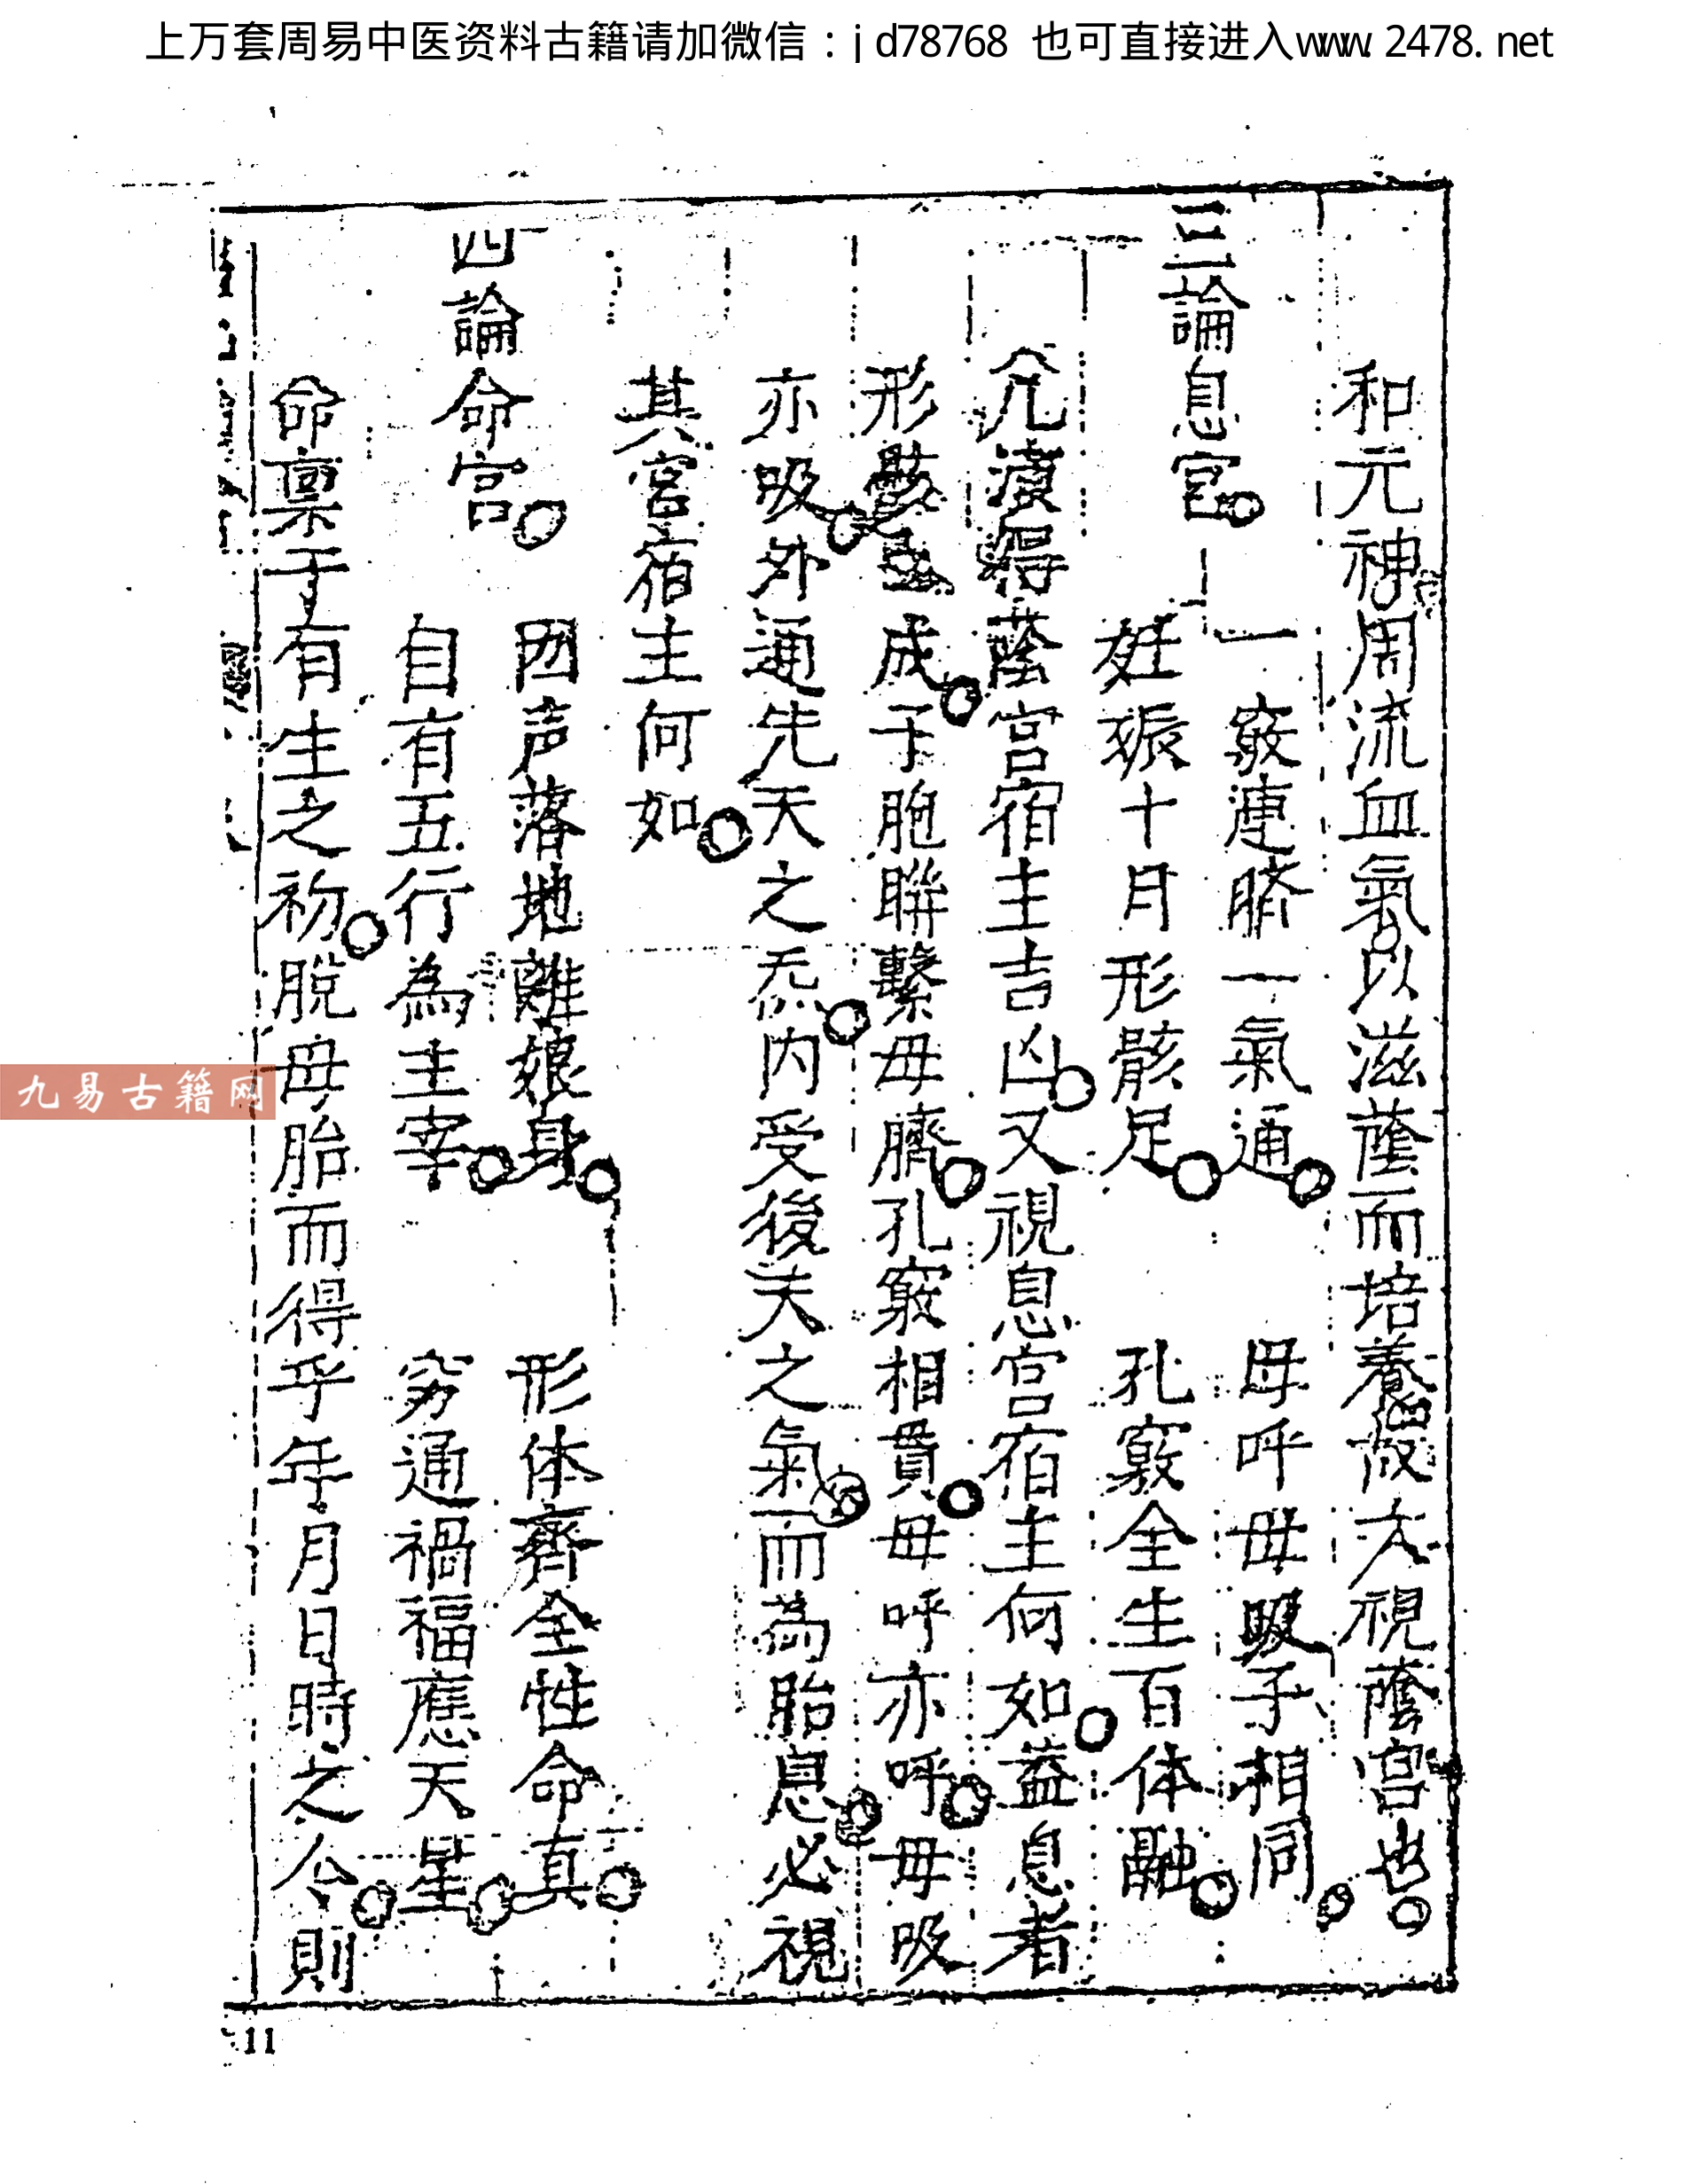 上万套周易中医资料古籍请加微信：jd78768 也可直接进入www.2478.net
和元神周流血氣以滋䕃而培養故大視䕃宮也
三論息宮
一竅連臍一氣通 母呼母吸子相同
姙娠十月形骸足 孔竅全生百体融
凢湏得䕃宮宿主吉凶又視息宮宿主何如蓋息者
形骸成子胞聯繫母臍孔竅相貫母呼亦呼母吸
亦吸外通先天之炁内受後天之氣而為胎息必視
其宮宿主何如
四論命宮
因声落地離娘身 形体齊全性命真
自有五行為主宰 窮通禍福應天星
命禀于有生之初脫母胎而得乎年月日時之令則
九易古籍网
11